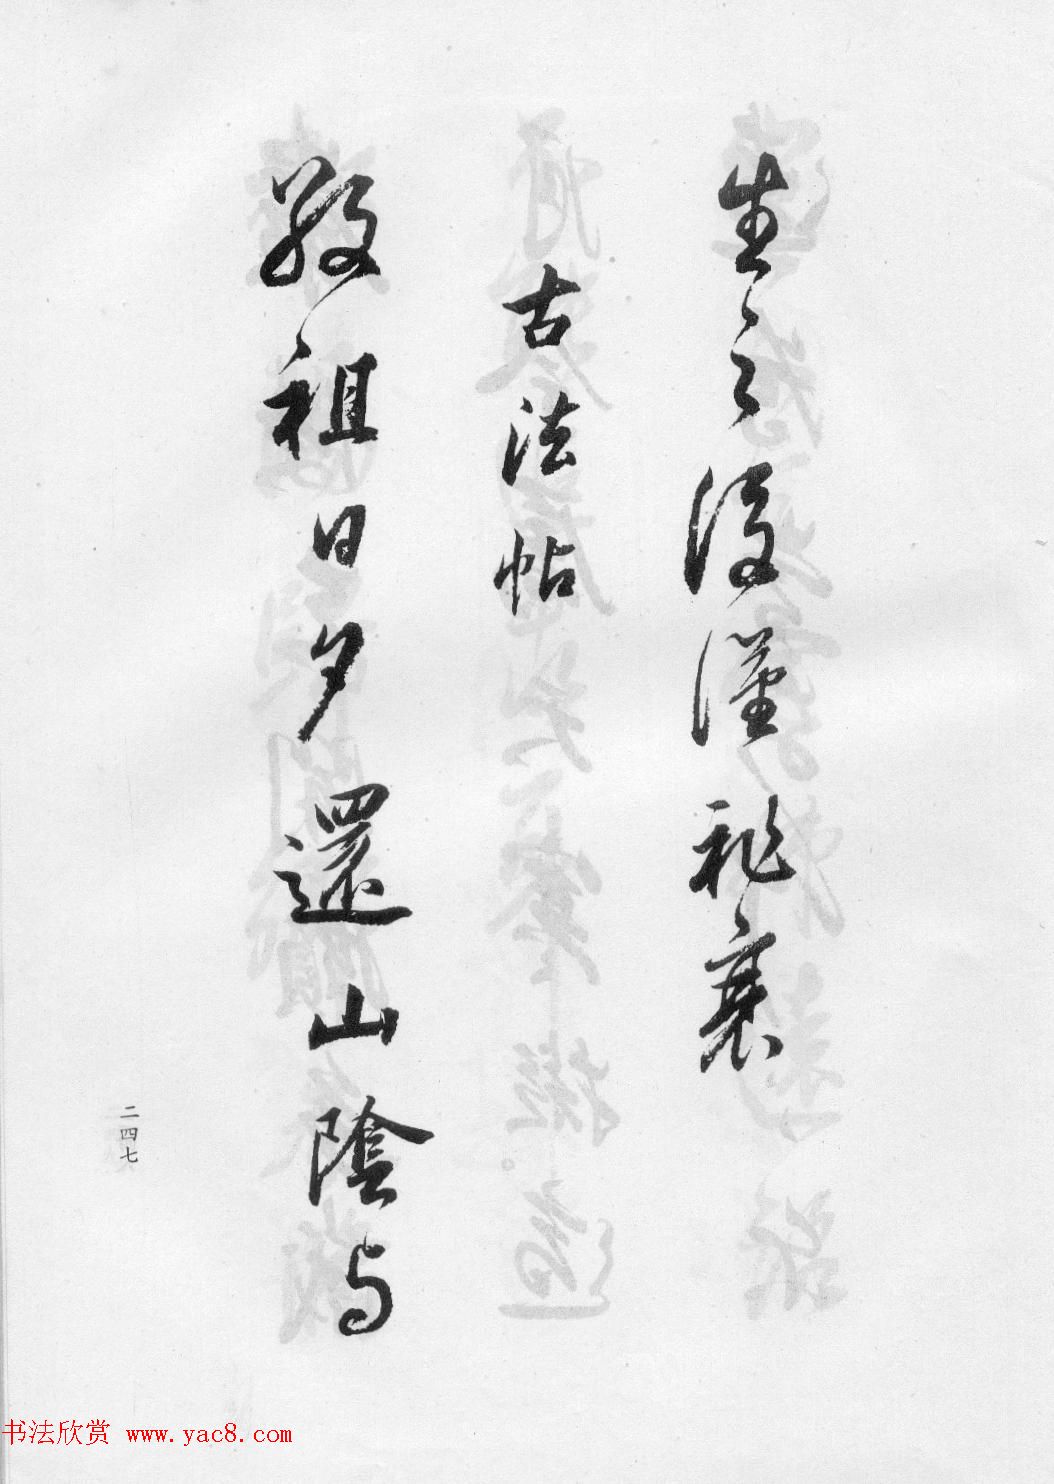 生之後僅衰
古法帖
敬祖日夕還山陰与
二四七
书法欣赏 www.yac8.com